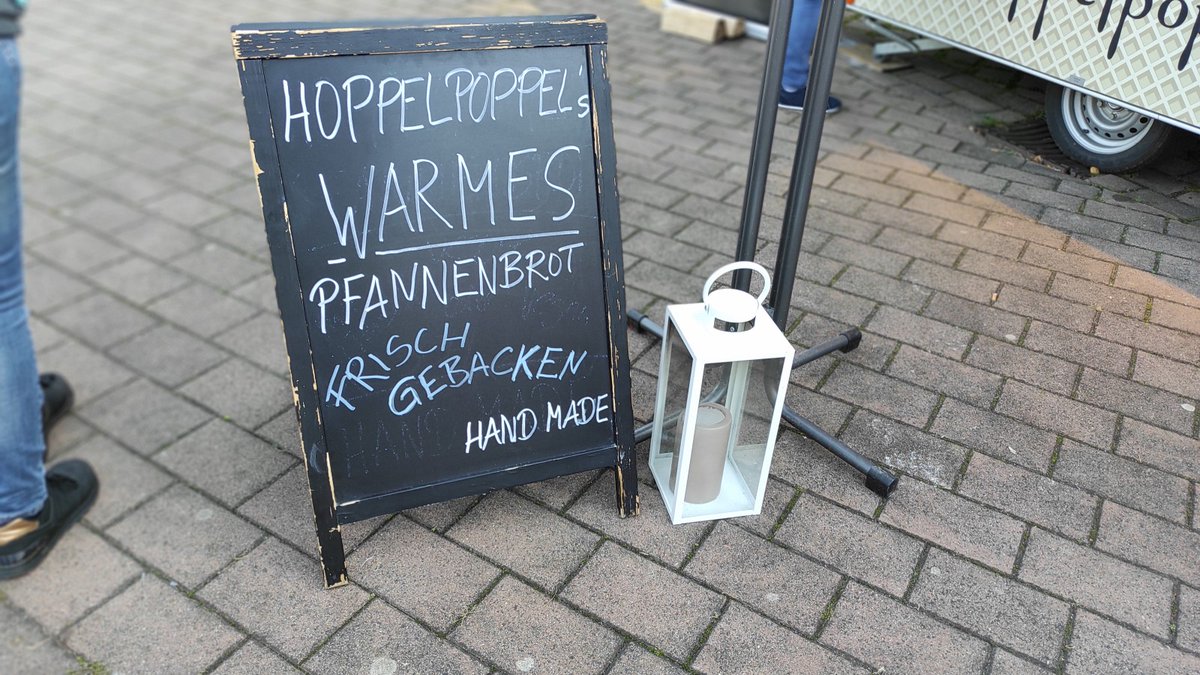 HOPPELPOPPEL's
WARMES
PFANNENBROT
FRISCH
GEBACKEN
HAND MADE